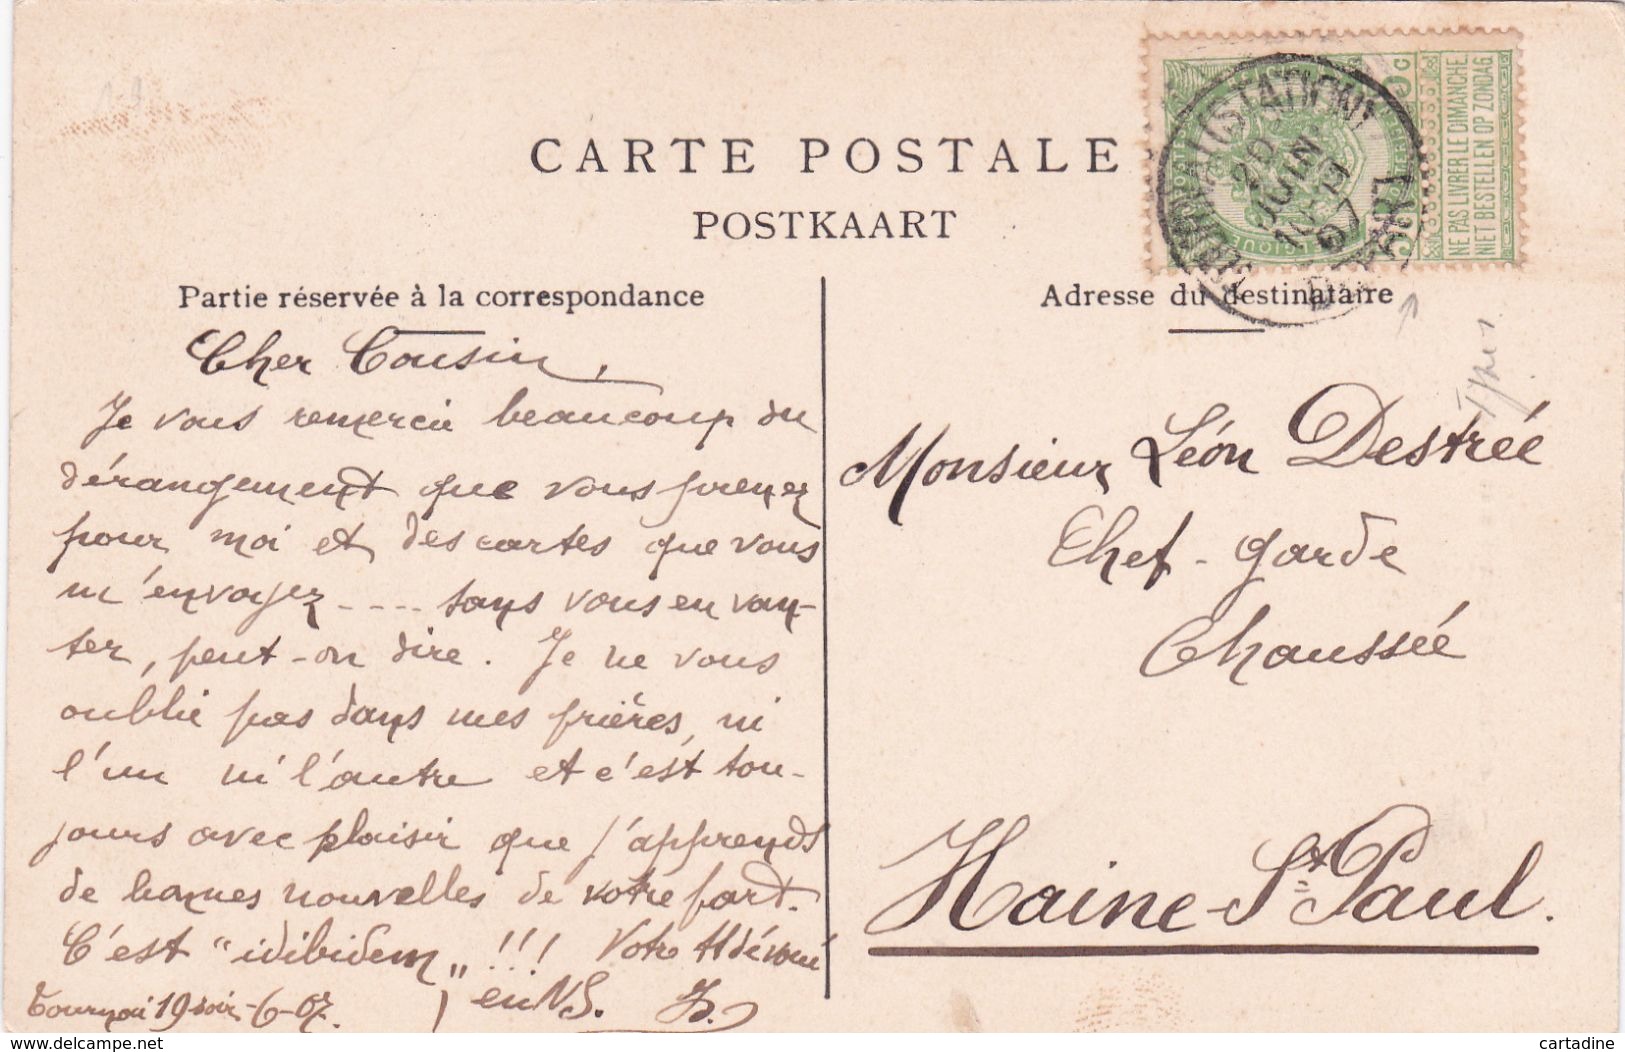 CARTE POSTALE
POSTKAART
Partie réservée à la correspondance
Adresse du destinataire
NE PAS LIVRER LE DIMANCHE
NIET BESTELLEN OP ZONDAG
(STATION)
20
JUIN
07
Cher Cousin,
Je vous remercie beaucoup du
dérangement que vous prenez
pour moi et des cartes que vous
m'envoyez .... sans vous en van-
ter, peut-on dire. Je ne vous
oublie pas dans mes prières, ni
l'un ni l'autre et c'est tou-
jours avec plaisir que j'apprends
de bonnes nouvelles de votre part.
C'est "idibidem" !!! Votre tt dévoué
en N.S.
Tournai 19 soir-6-07.
Monsieur Léon Destrée
Chef-garde
Chaussée
Haine-St Paul.
delcampe.net
cartadine